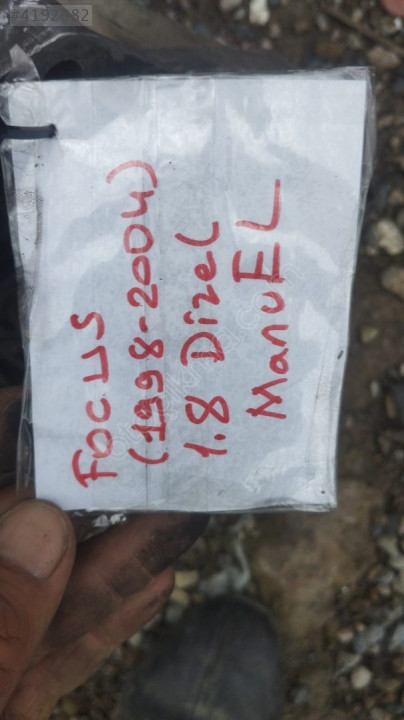 #4192682
Focus
(1998-2004)
1.8 Dizel
ManuEL